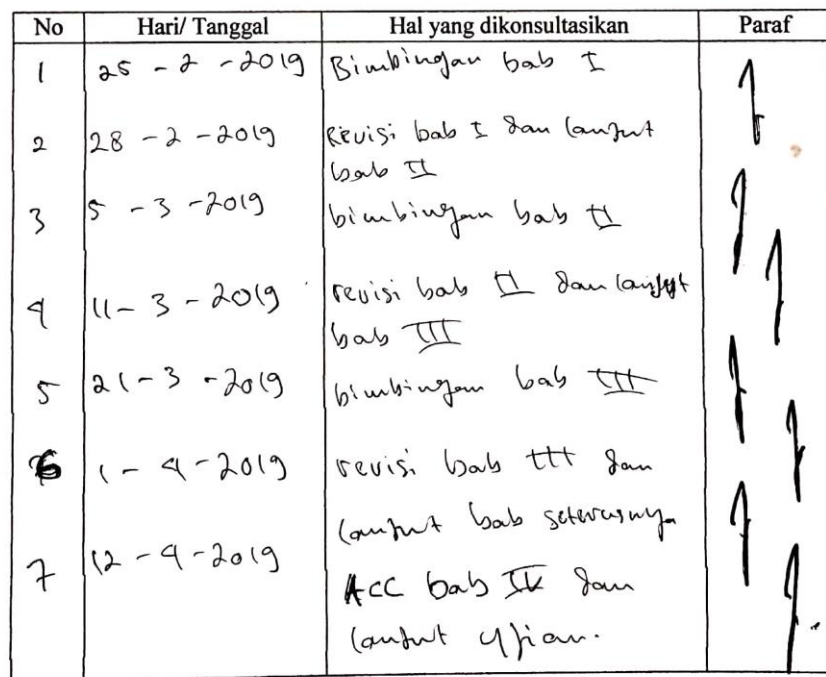 No Hari/ Tanggal Hal yang dikonsultasikan Paraf
1 25 - 2 - 2019 Bimbingan bab I
2 28 - 2 - 2019 Revisi bab I dan lanjut
bab II
3 5 - 3 - 2019 bimbingan bab II
4 11 - 3 - 2019 revisi bab II dan lanjut
bab III
5 21 - 3 - 2019 bimbingan bab III
6 1 - 4 - 2019 revisi bab III dan
lanjut bab seterusnya
7 12 - 4 - 2019
ACC bab IV dan
lanjut ujian.